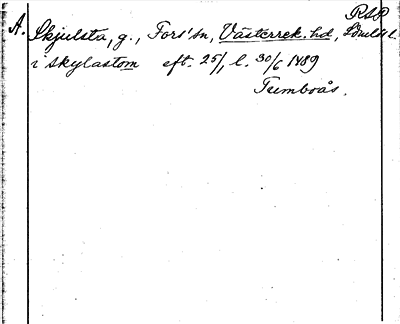 RSP
A. Skjulsta, g., Fors' sn, Västerrek. hd, Södml. l.
i skylastom eft. 25/1 l. 30/6 1489
Tumboås.